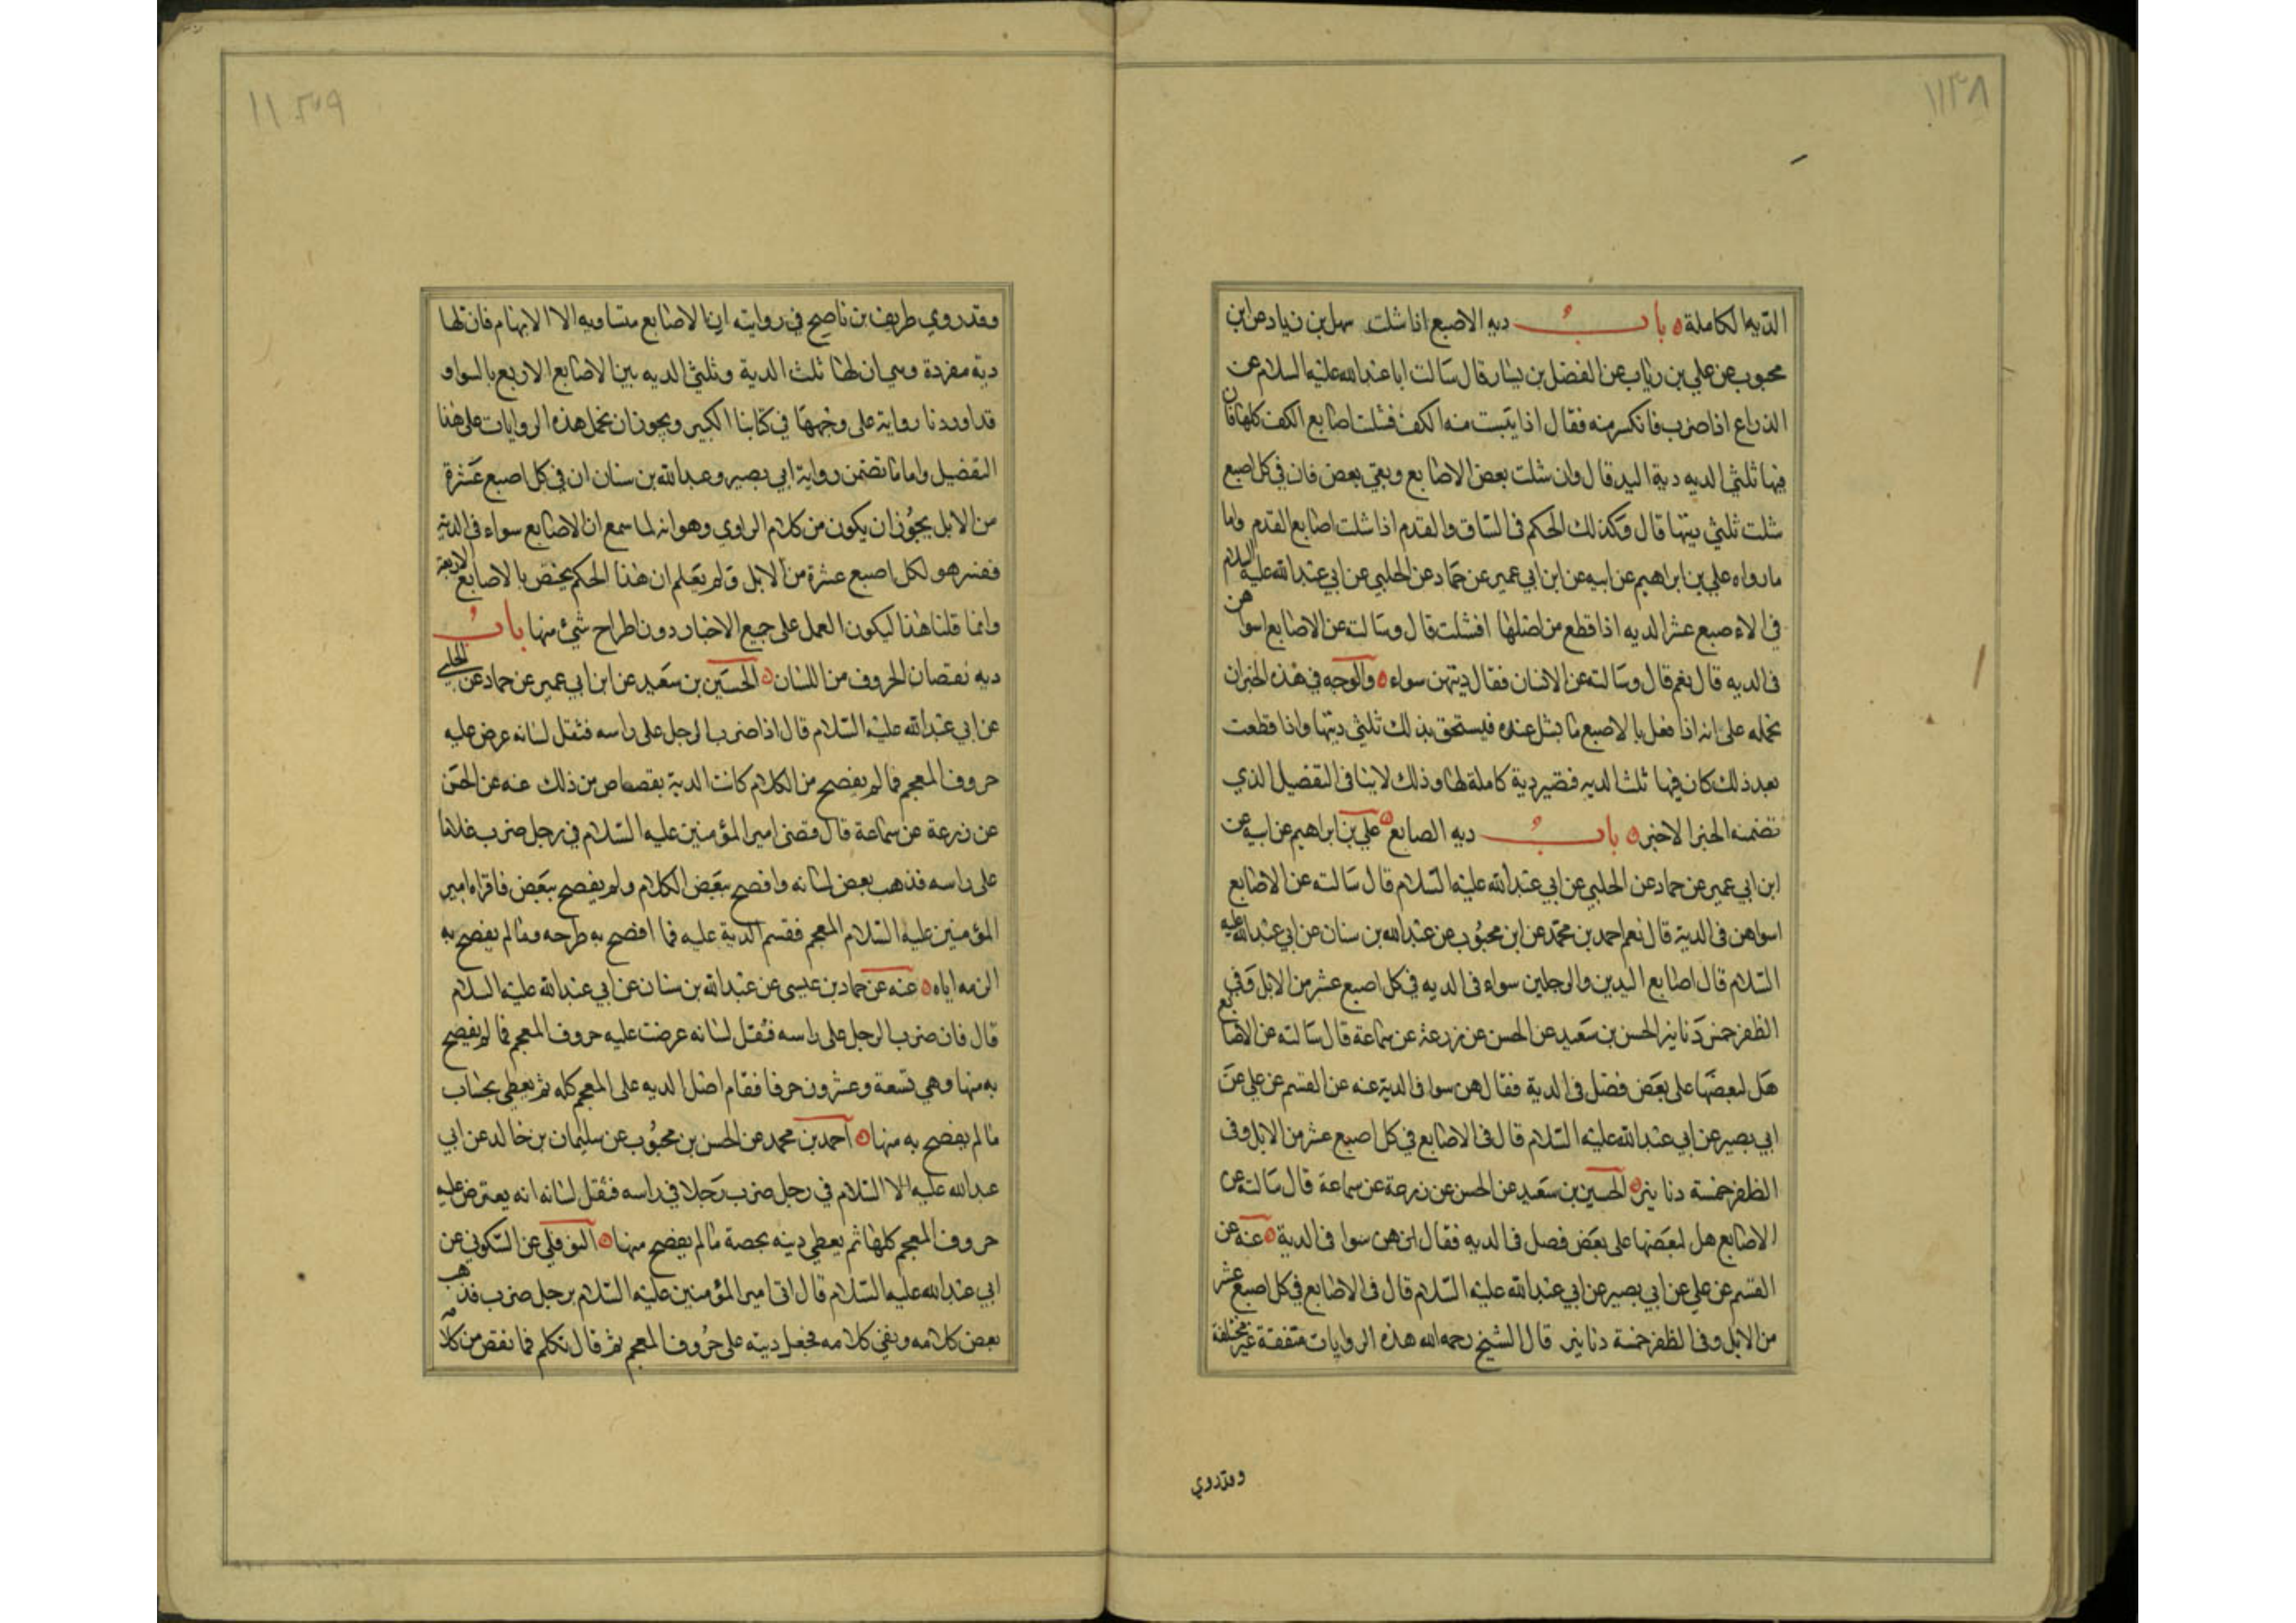 ١١٣٨
الدية الكاملة باب دية الاصبع اذا شلت سهل بن زياد عن ابن
محبوب عن علي بن رياب عن الفضل بن يسار قال سالت ابا عبدالله عليه السلام عن
الذراع اذا ضرب فانكسر منه فقال اذا يبست منه الكف فشلت اصابع الكف كلها فان
فيها ثلثي الديه دية اليد قال وان شلت بعض الاصابع وبقي بعض فان في كل اصبع
شلت ثلثي ديتها قال وكذلك الحكم في الساق والقدم اذا شلت اصابع القدم واما
ما رواه علي بن ابراهيم عن ابيه عن ابن ابي عمير عن حماد عن الحلبي عن ابي عبدالله عليه السلام
في الاصبع عشر الديه اذا قطع من اصلها او شلت قال وسالته عن الاصابع اسوا هن
في الديه قال نعم قال وسالته عن الاسنان فقال ديتهن سواء والوجه في هذه الخبر ان
نحمله على انه اذا فعل بالاصبع ما يشل عنده فيستحق بذلك ثلثي ديتها واذا قطعت
بعد ذلك كان فيها ثلث الديه فتصير دية كاملة لها وذلك لا ينافي التفصيل الذي
تضمنه الخبر الاخير باب ديه الصابع علي بن ابراهيم عن ابيه عن
ابن ابي عمير عن حماد عن الحلبي عن ابي عبدالله عليه السلام قال سالته عن الاصابع
اسوا هن في الدية قال نعم احمد بن محمد عن ابن محبوب عن عبدالله بن سنان عن ابي عبدالله عليه
السلام قال اصابع اليدين والرجلين سواء في الديه في كل اصبع عشر من الابل وفي
الظفر خمس دنانير الحسن بن سعيد عن الحسن عن زرعة عن سماعة قال سالته عن الاصابع
هل لبعضها على بعض فضل في الدية فقال هن سوا في الدية عنه عن القسم عن علي عن
ابي بصير عن ابي عبدالله عليه السلام قال في الاصابع في كل اصبع عشر من الابل وفي
الظفر خمسة دنانير الحسين بن سعيد عن الحسن عن زرعة عن سماعة قال سالته عن
الاصابع هل لبعضها على بعض فصل في الديه فقال ان هن سوا في الدية عنه عن
القسم عن علي عن ابي بصير عن ابي عبدالله عليه السلام قال في الاصابع في كل اصبع عشر
من الابل وفي الظفر خمسة دنانير قال الشيخ رحمه الله هذه الروايات متفقة غير مختلفة
وقد روي
١١٣٩
وقد روي طريف بن ناصح في روايته ان الاصابع متساويه الا الابهام فان لها
دية مفردة وهي ان لها ثلث الدية وثلثي الديه بين الاصابع الاربع بالسواء و
قد اوردنا رواية على وجهها في كتابنا الكبير ويجوز ان نحمل هذه الروايات على هذا
التفضيل واما ما تضمن رواية ابي بصير وعبدالله بن سنان ان في كل اصبع عشرة
من الابل يجوز ان يكون من كلام الراوي وهو انه لما سمع ان الاصابع سواء في الدية
ففسر هو لكل اصبع عشرة من الابل ولم يعلم ان هذا الحكم يختص بالاصابع الاربعة
وانما قلنا هذا ليكون العمل على جميع الاخبار دون اطراح شيء منها باب
ديه نقصان الحروف من اللسان الحسين بن سعيد عن ابن ابي عمير عن حماد عن الحلبي
عن ابي عبدالله عليه السلام قال اذا ضرب الرجل على راسه فثقل لسانه عرض عليه
حروف المعجم فما لم يفصح من الكلام كانت الدية بقصاص من ذلك عنه عن الحسن
عن زرعة عن سماعة قال قضى امير المؤمنين عليه السلام في رجل ضرب غلاما
على راسه فذهب بعض لسانه وافصح ببعض الكلام ولم يفصح ببعض فاقراه امير
المؤمنين عليه السلام المعجم فقسم الدية عليه فما افصح به طرحه وما لم يفصح به
الزمه اياه عنه عن حماد بن عيسى عن عبدالله بن سنان عن ابي عبدالله عليه السلام
قال فان ضرب الرجل على راسه فثقل لسانه عرضت عليه حروف المعجم فما لم يفصح
به منها وهي تسعة وعشرون حرفا فقام اصل الديه على المعجم كله ثم يعطي بحساب
ما لم يفصح به منها احمد بن محمد عن الحسن بن محبوب عن سليمان بن خالد عن ابي
عبدالله عليه السلام في رجل ضرب رجلا في راسه فثقل لسانه انه يعترض عليه
حروف المعجم كلها ثم يعطي ديته بحصة ما لم يفصح منها النوفلي عن السكوني عن
ابي عبدالله عليه السلام قال اتى امير المؤمنين عليه السلام برجل ضرب فذهب
بعض كلامه وبقي كلامه فجعل ديته على حروف المعجم ثم قال تكلم فما نقص من كلامه